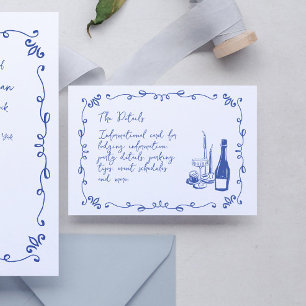 of
The Details
Informational card for
lodging information,
party details, parking
tips, event schedules
and more.